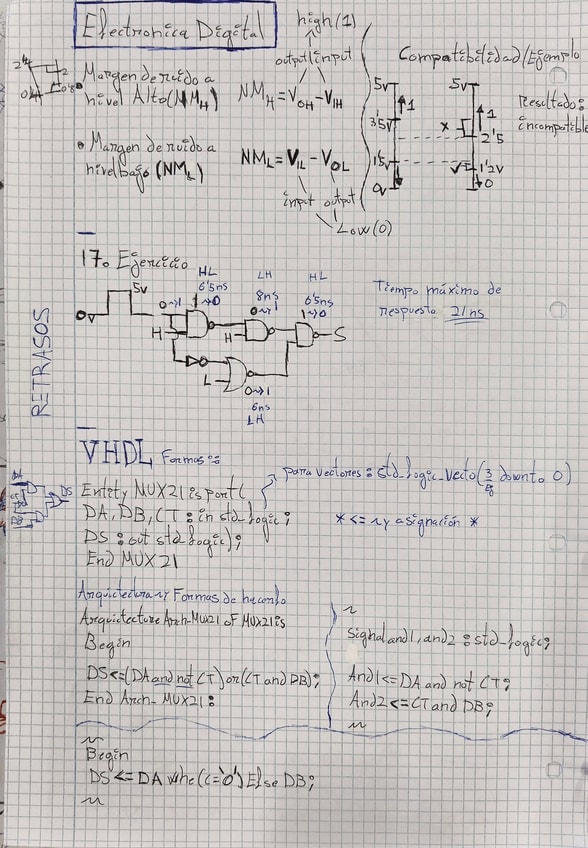 Electronica Digital
high(1)
output input
Margen de ruido a
nivel Alto(NMH)
NMH=VOH-VIH
Margen de ruido a
nivel bajo (NML)
NML=VIL-VOL
input output
Low(0)
Compatibilidad/Ejemplo
5v
5v
Resultado:
incompatible
1
1
3'5v
x
2'5
1'5v
1'2v
0v
0
17. Ejercicio
HL
6'5ns
0→1
1→0
LH
8ns
0→1
HL
6'5ns
1→0
Tiempo máximo de
respuesta 21ns
5v
0v
H
H
S
L
0→1
6ns
LH
RETRASOS
VHDL Formas
para vectores: std_logic_vecto( downto 0)
Entity MUX21 is port(
DA, DB, CT: in std_logic;
DS: out std_logic);
End MUX21
DS
* <= asignación *
Arquictectura Formas de hacerlo
Arquictecture Arch-MUX21 OF MUX21 is
Begin
DS<=(DA and not CT) or (CT and DB);
End Arch-MUX21:
Signal and1, and2: std_logic;
And1<=DA and not CT;
And2<=CT and DB;
Begin
DS<=DA whe(c='0') Else DB;